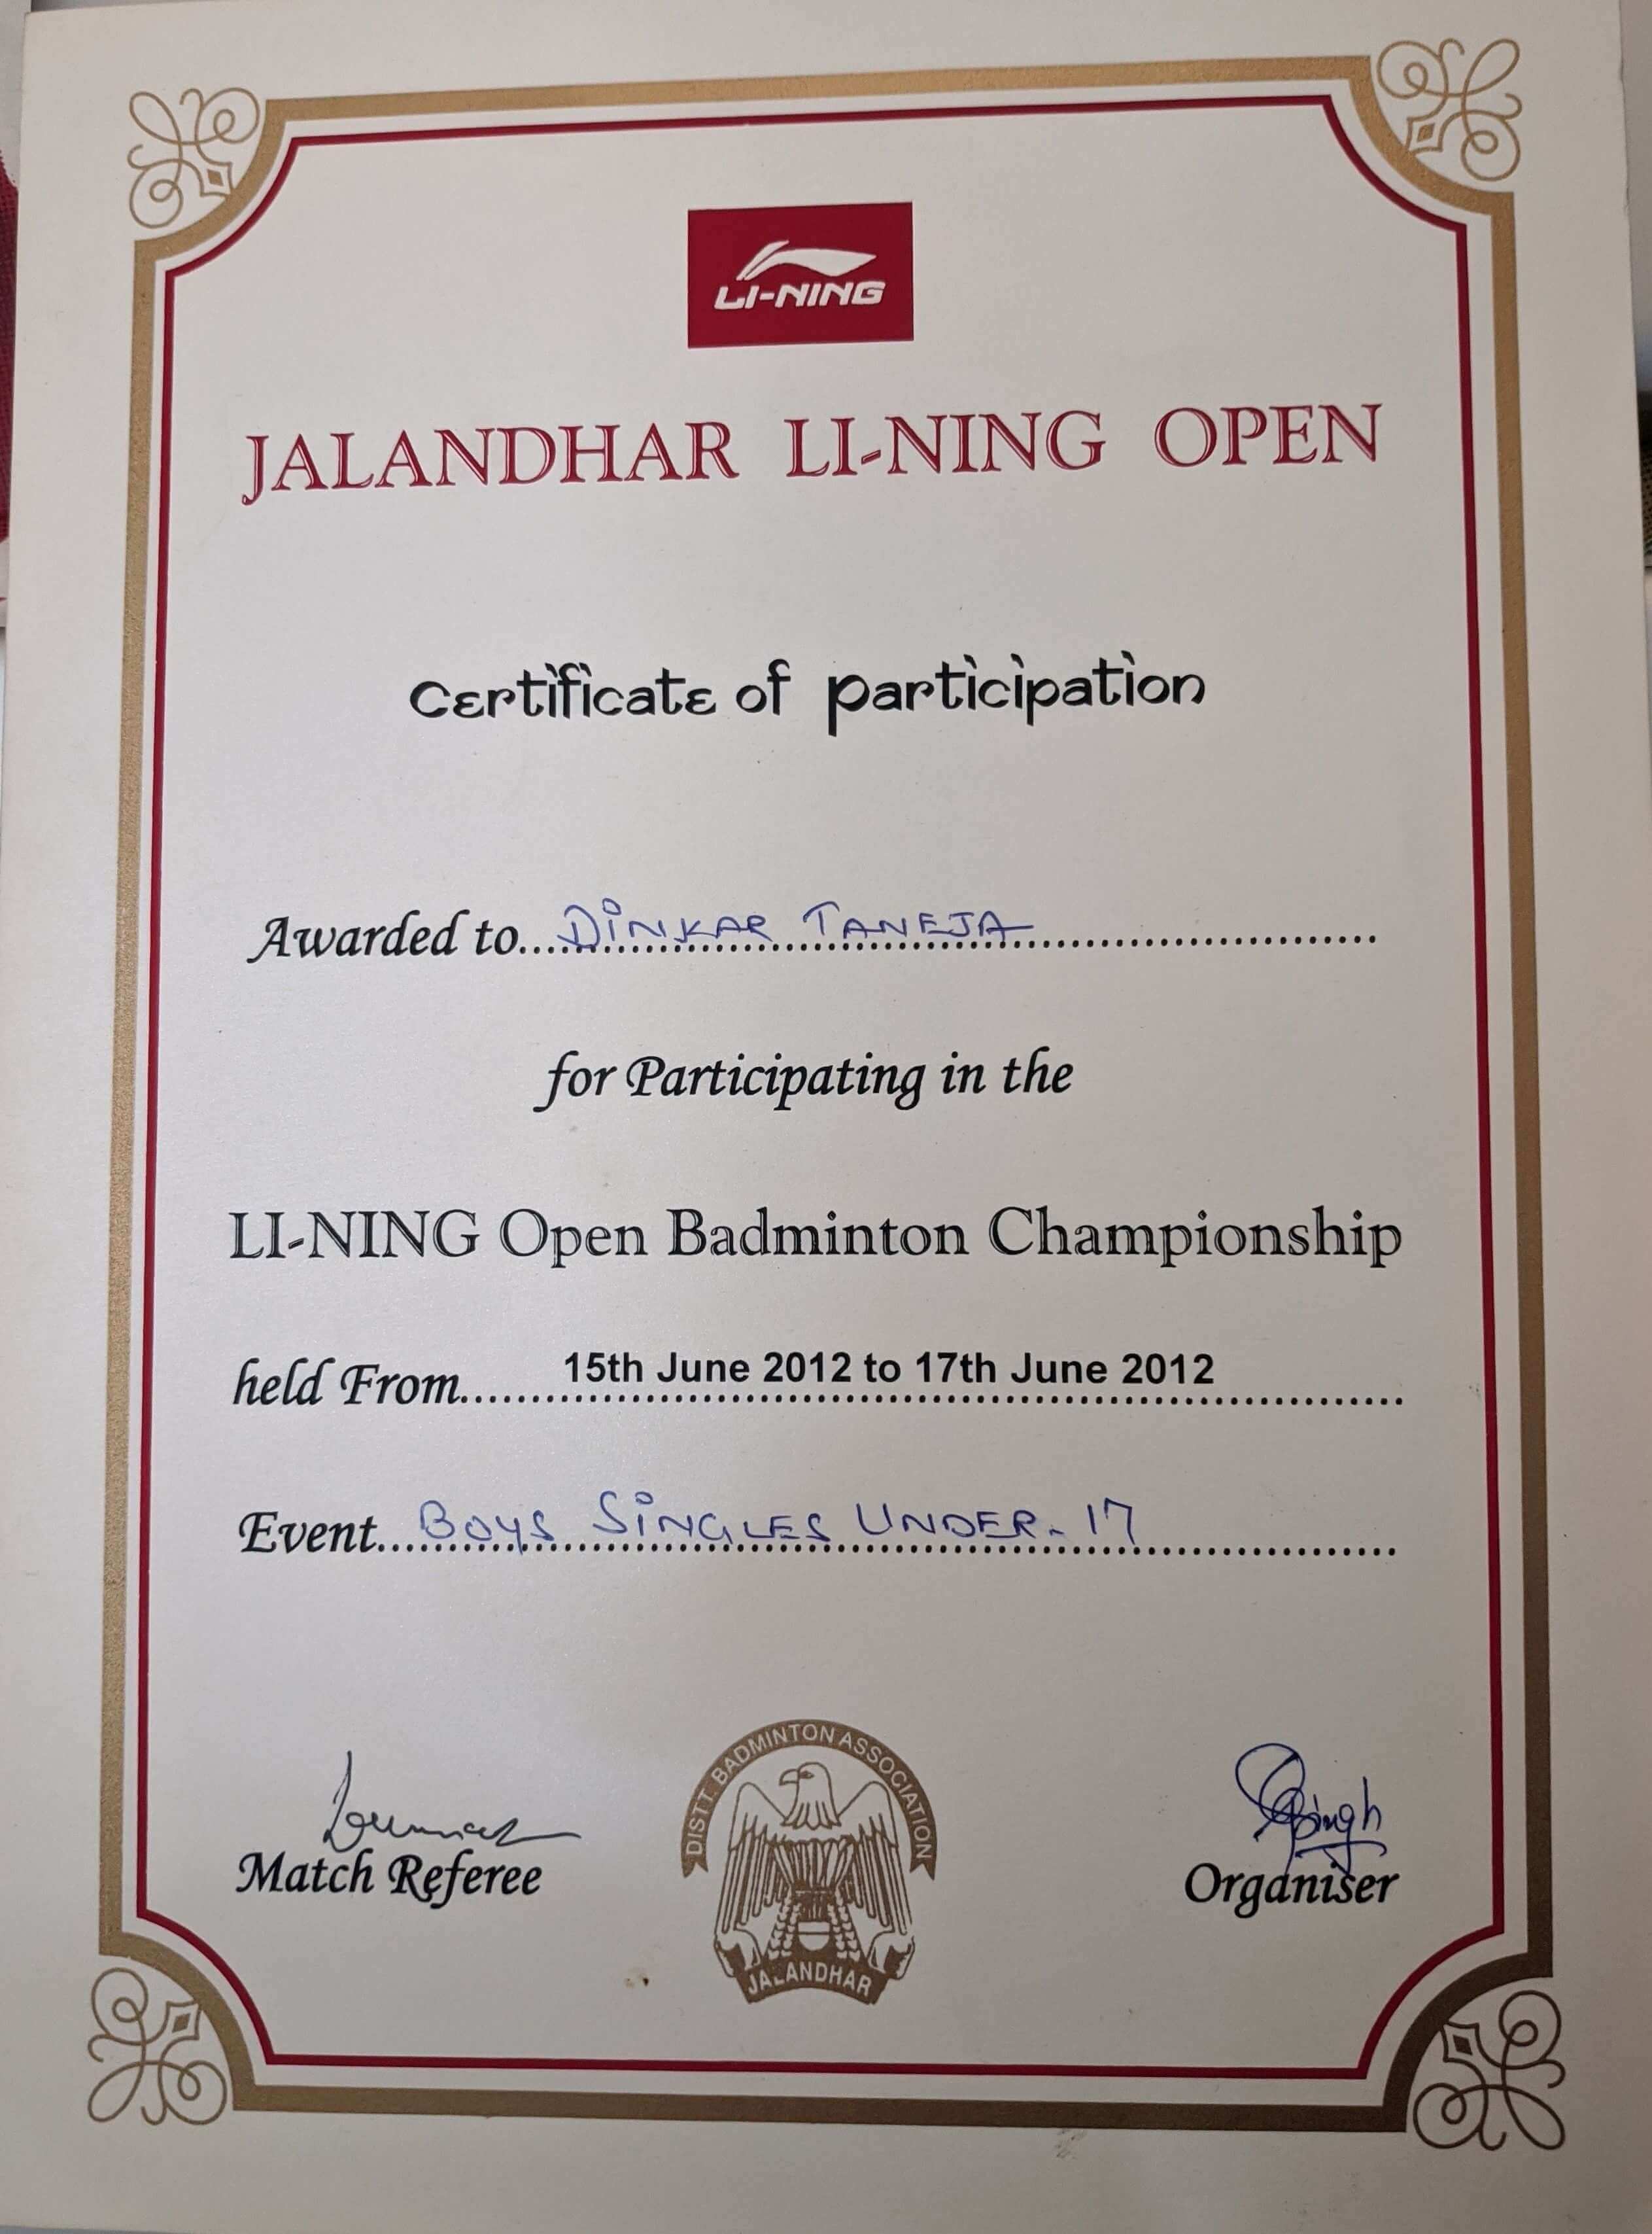 LI-NING
JALANDHAR LI-NING OPEN
Certificate of participation
Awarded to....DINKAR TANEJA............
for Participating in the
LI-NING Open Badminton Championship
held From....15th June 2012 to 17th June 2012............
Event....BOYS SINGLES UNDER-17............
Singh
Match Referee
Organiser
DISTT BADMINTON ASSOCIATION
JALANDHAR